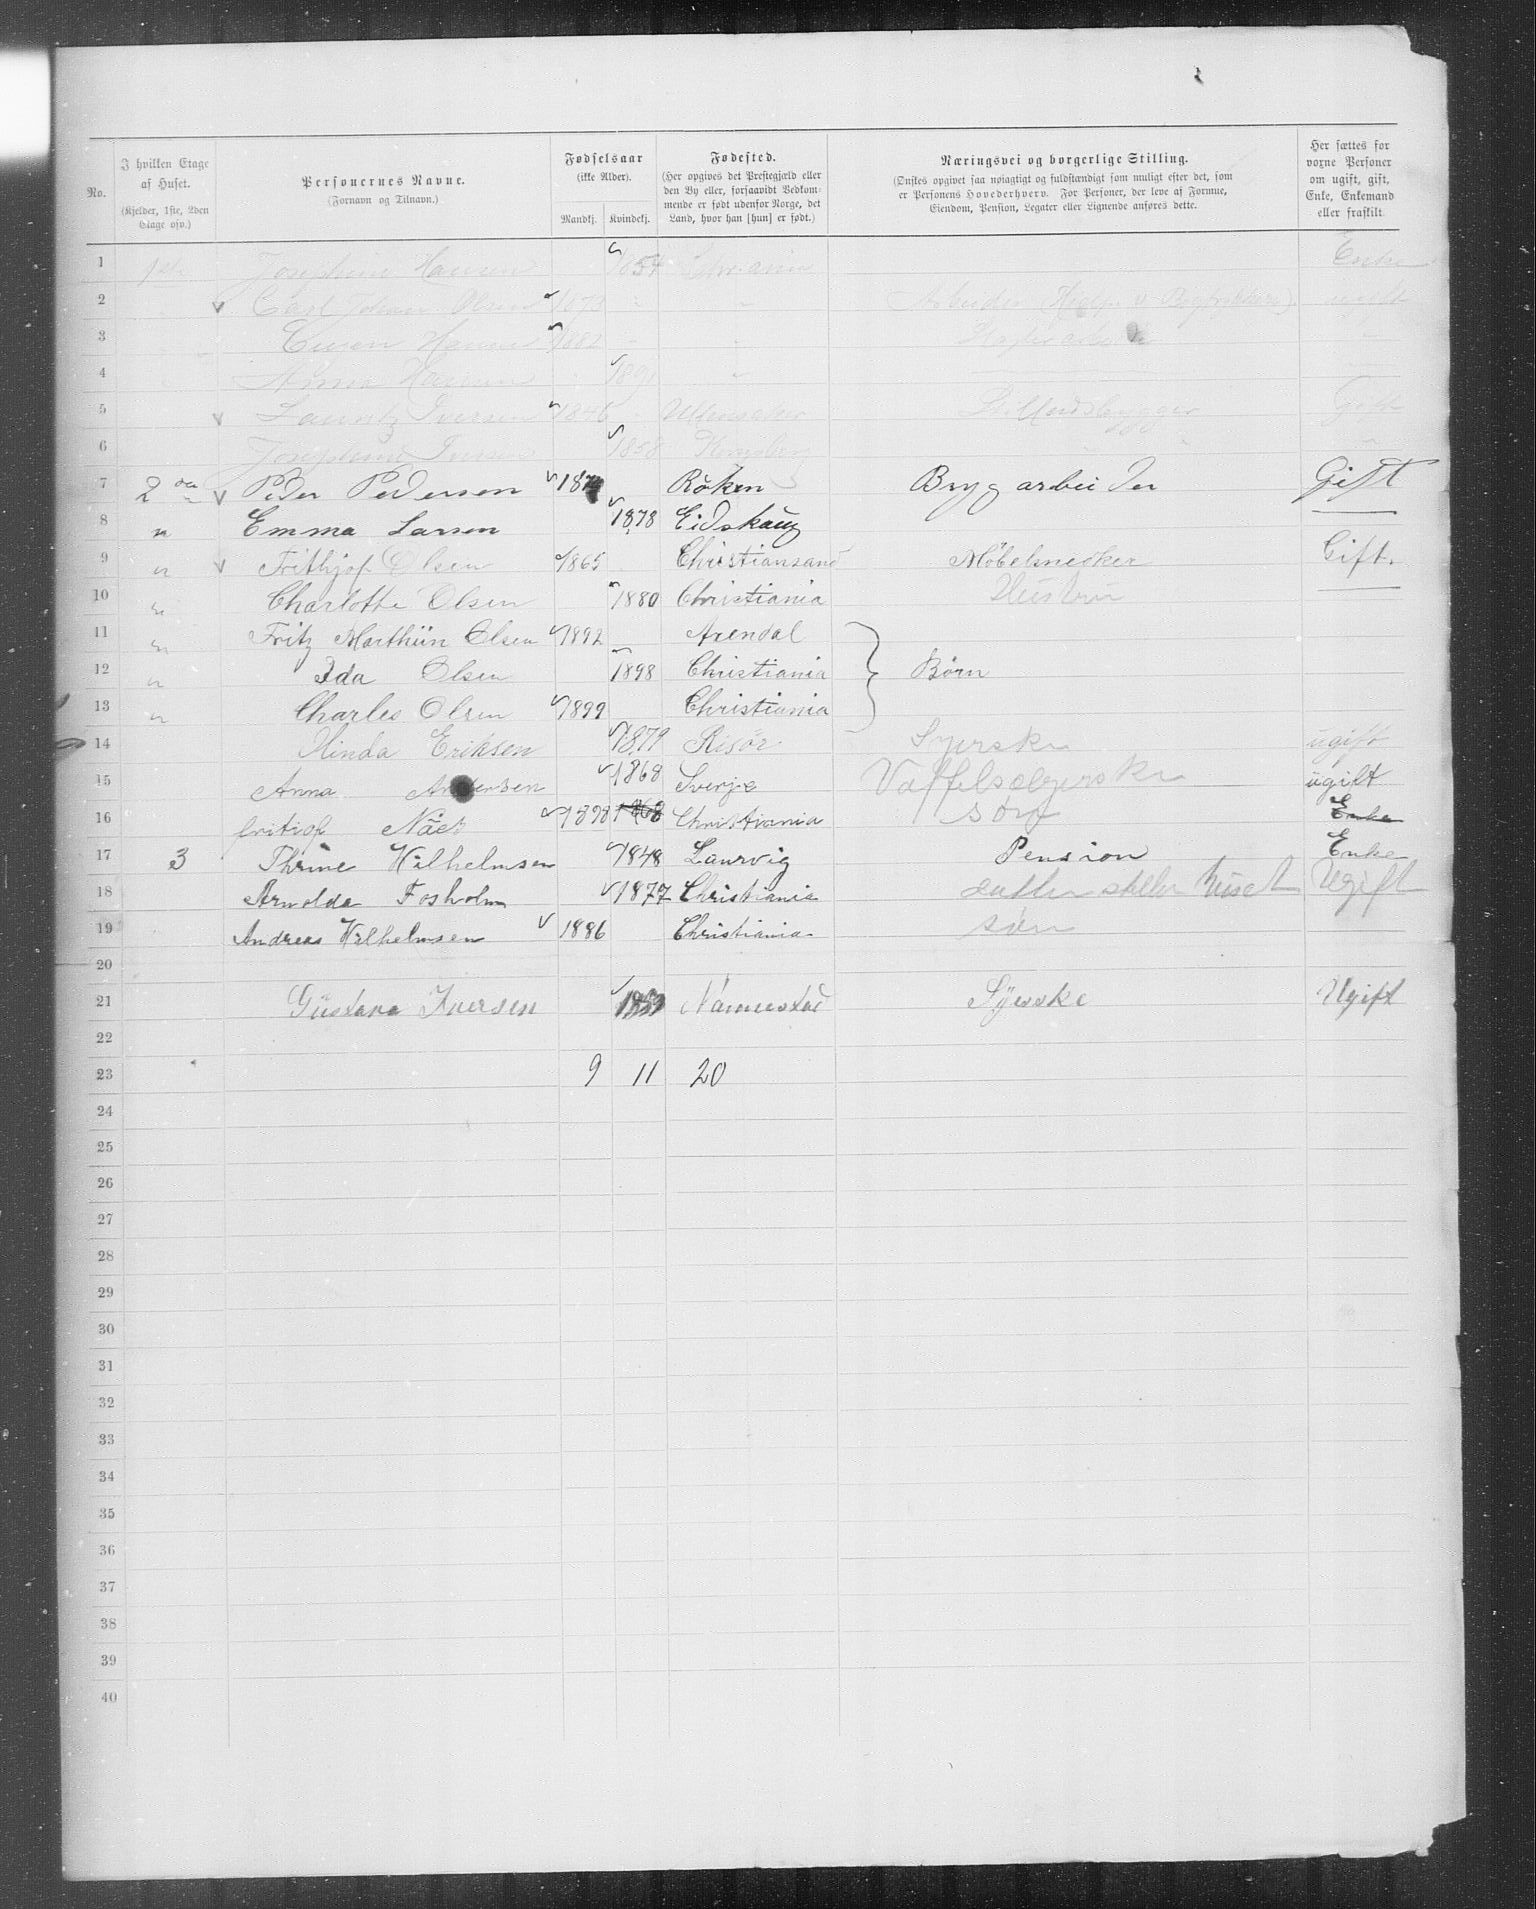 No.
I hvilken Etage af Huset.
(Kjelder, 1ste, 2den Etage osv.)
Personernes Navne.
(Fornavn og Tilnavn.)
Fødselsaar
(ikke Alder).
Mandkj. Kvindekj.
Fødested.
(Her opgives det Prestegjæld eller den By eller, forsaavidt Vedkommende er født udenfor Norge, det Land, hvor han [hun] er født.)
Næringsvei og borgerlige Stilling.
(Ønskes opgivet saa nøiagtigt og fuldstændigt som muligt efter det, som er Personens Hovederhverv. For Personer, der leve af Formue, Eiendom, Pension, Legater eller Lignende anføres dette.
Her sættes for voxne Personer om ugift, gift, Enke, Enkemand eller fraskilt.
1 1ste Josephine Hansen 1854 Enke
2 Carl Johan Olsen 1873 " ugift
3 Hansen 1882 "
4 Anna Hansen "
5 Lauritz Iversen 1846 Ullensaker Gift
6 Josephine Iversen 1858 Kongsberg "
7 2den Peder Pedersen Røken Brygarbeider Gift
8 " Emma Larsen 1878 Eidskoug
9 " Frithjof Olsen 1865 Christiansand Møbelsnedker Gift.
10 " Charlotte Olsen 1880 Christiania Hustru
11 " Fritz Marthiin Olsen 1892 Arendal
12 " Ida Olsen 1898 Christiania Børn
13 " Charles Olsen 1899 Christiania
14 Hinda Eriksen 1879 Risør Syerske ugift
15 Anna Andersen 1868 Sverje ugift
16 fritiof 1898 1868 Christiania Enke
17 3 Thrine Wilhelmsen 1848 Laurvig Pension Enke
18 Arnolda Fosholm 1877 Christiania steller huset Ugift
19 Andreas Wilhelmsen 1886 Christiania søn
20
21 Güstava Iversen Nannestad Syerske Ugift
22
23 9 11 20
24
25
26
27
28
29
30
31
32
33
34
35
36
37
38
39
40